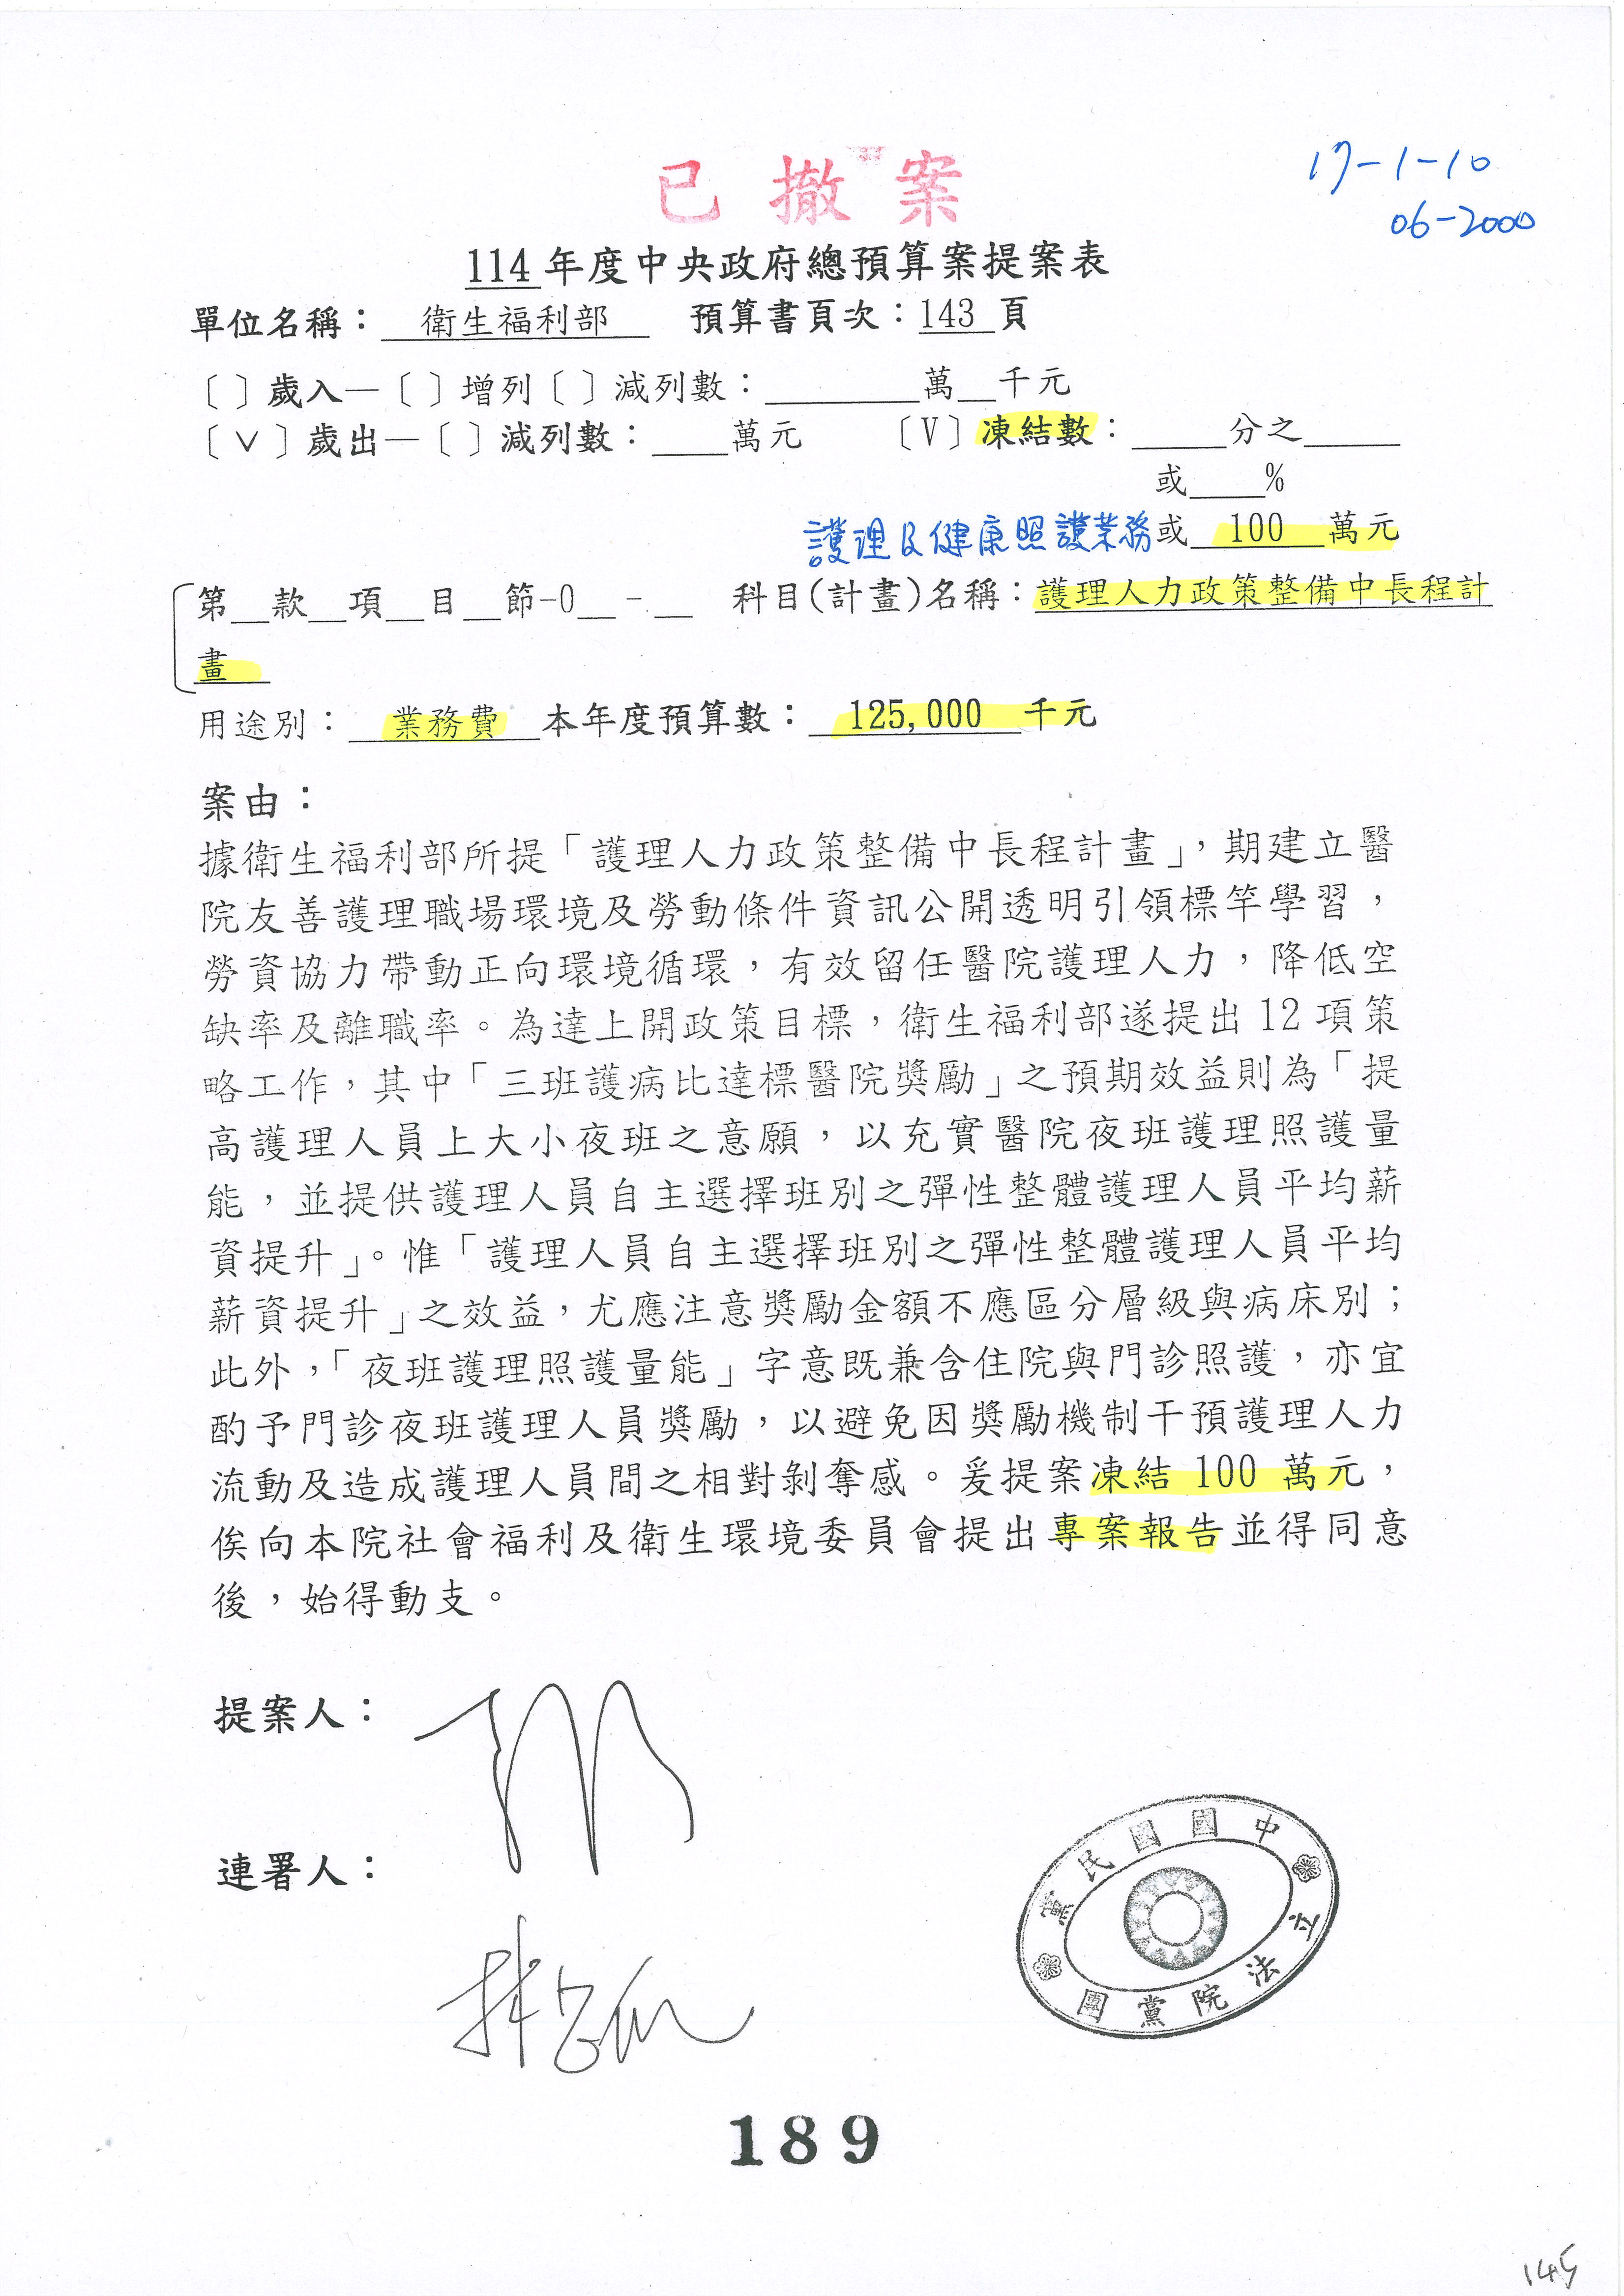 已撤案
17-1-10
06-2000
114年度中央政府總預算案提案表
單位名稱：衛生福利部 預算書頁次：143頁
〔〕歲入—〔〕增列〔〕減列數：________萬__千元
〔V〕歲出—〔〕減列數：____萬元 〔V〕凍結數：_____分之_____
或____%
護理及健康照護業務或 100 萬元
第__款__項__目__節-0__-__ 科目(計畫)名稱：護理人力政策整備中長程計
畫
用途別：業務費 本年度預算數：125,000千元
案由：
據衛生福利部所提「護理人力政策整備中長程計畫」，期建立醫
院友善護理職場環境及勞動條件資訊公開透明引領標竿學習，
勞資協力帶動正向環境循環，有效留任醫院護理人力，降低空
缺率及離職率。為達上開政策目標，衛生福利部遂提出12項策
略工作，其中「三班護病比達標醫院獎勵」之預期效益則為「提
高護理人員上大小夜班之意願，以充實醫院夜班護理照護量
能，並提供護理人員自主選擇班別之彈性整體護理人員平均薪
資提升」。惟「護理人員自主選擇班別之彈性整體護理人員平均
薪資提升」之效益，尤應注意獎勵金額不應區分層級與病床別；
此外，「夜班護理照護量能」字意既兼含住院與門診照護，亦宜
酌予門診夜班護理人員獎勵，以避免因獎勵機制干預護理人力
流動及造成護理人員間之相對剝奪感。爰提案凍結100萬元，
俟向本院社會福利及衛生環境委員會提出專案報告並得同意
後，始得動支。
提案人：
連署人：
中國國民黨
立法院黨團
189
145